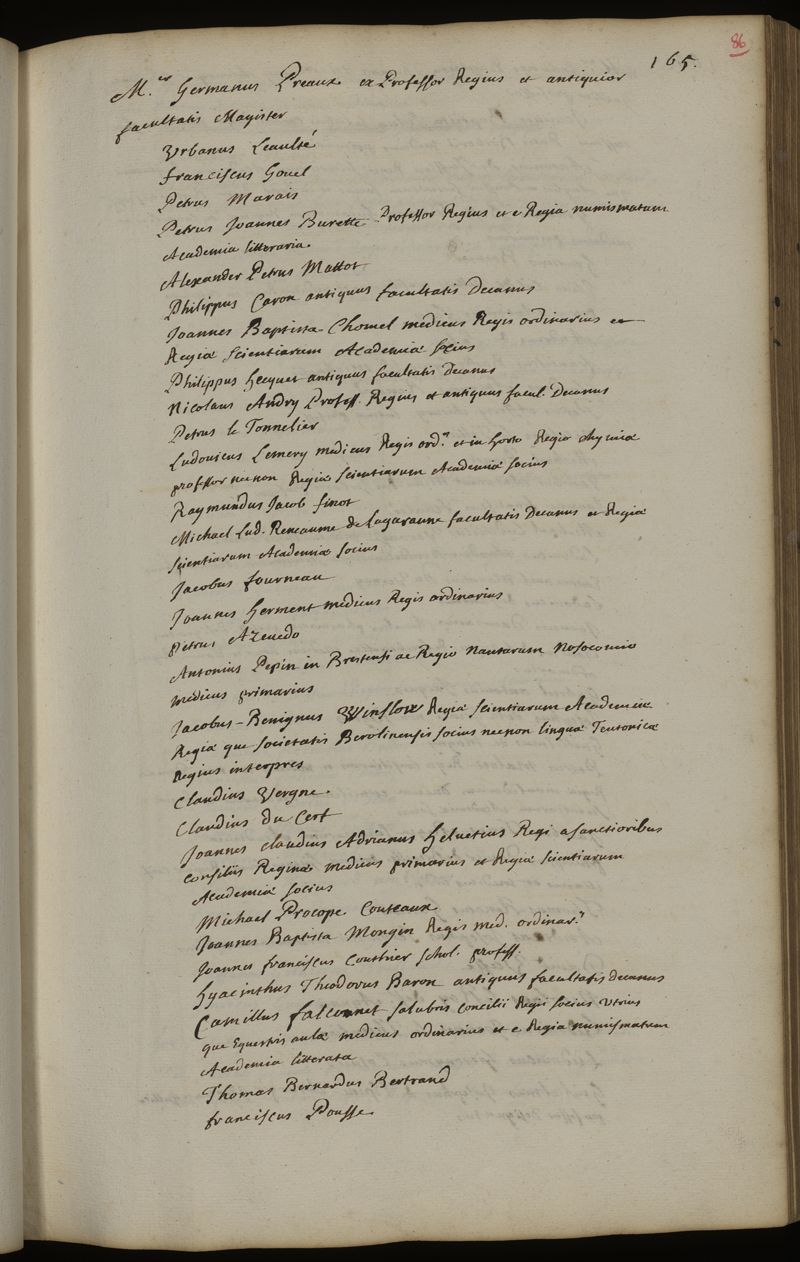 86
165.
M.er Germanus Preaux ex Professor Regius et antiquior
facultatis Magister
Urbanus Leaulté
franciscus Gouel
Petrus Marais
Petrus Joannes Burette Professor Regius et e Regia numismatum
Academia litteraria.
Alexander Petrus Mattot
Philippus Caron antiquus facultatis Decanus
Joannes Baptista Chomel medicus Regis ordinarius et
Regiæ scientiarum Academiæ socius
Philippus hecquet antiquus facultatis Decanus
Nicolaus Andry Profess. Regius et antiquus facul. Decanus
Petrus le Tonnelier
Ludovicus Lemery medicus Regis ord.s et in horto Regio chymiæ
professor necnon Regiæ scientiarum Academiæ socius
Raymundus Jacob finot
Michael Lud. Reneaume de Lagaranne facultatis Decanus et Regiæ
scientiarum Academiæ socius
Jacobus fourneau
Joannes herment medicus Regis ordinarius
petrus Azevedo
Antonius Pepin in Brestensi ac Regio Nautarum Nosocomio
medicus primarius
Jacobus-Benignus Winslow Regiæ scientiarum Academiæ
Regiæ que societatis Berolinensis socius necnon linguæ Teutonicæ
Regius interpres
Claudius Vergne.
Claudius Du Cerf
Joannes claudius Adrianus helvetius Regi a sanctioribus
consiliis Reginæ medicus primarius et Regiæ scientiarum
Academiæ socius
Michael Procope Couteaux
Joannes Baptista Mongin Regis med. ordinar.s
Joannes franciscus Couthier schol. profess.
hyacinthus Theodorus Baron antiquus facultatis decanus
Camillus falconnet salubris concilii Regii socius utrius
que Equestris aulæ medicus ordinarius et e Regia numismatum
Academia litterata
Thomas Bernardus Bertrand
franciscus Pousse